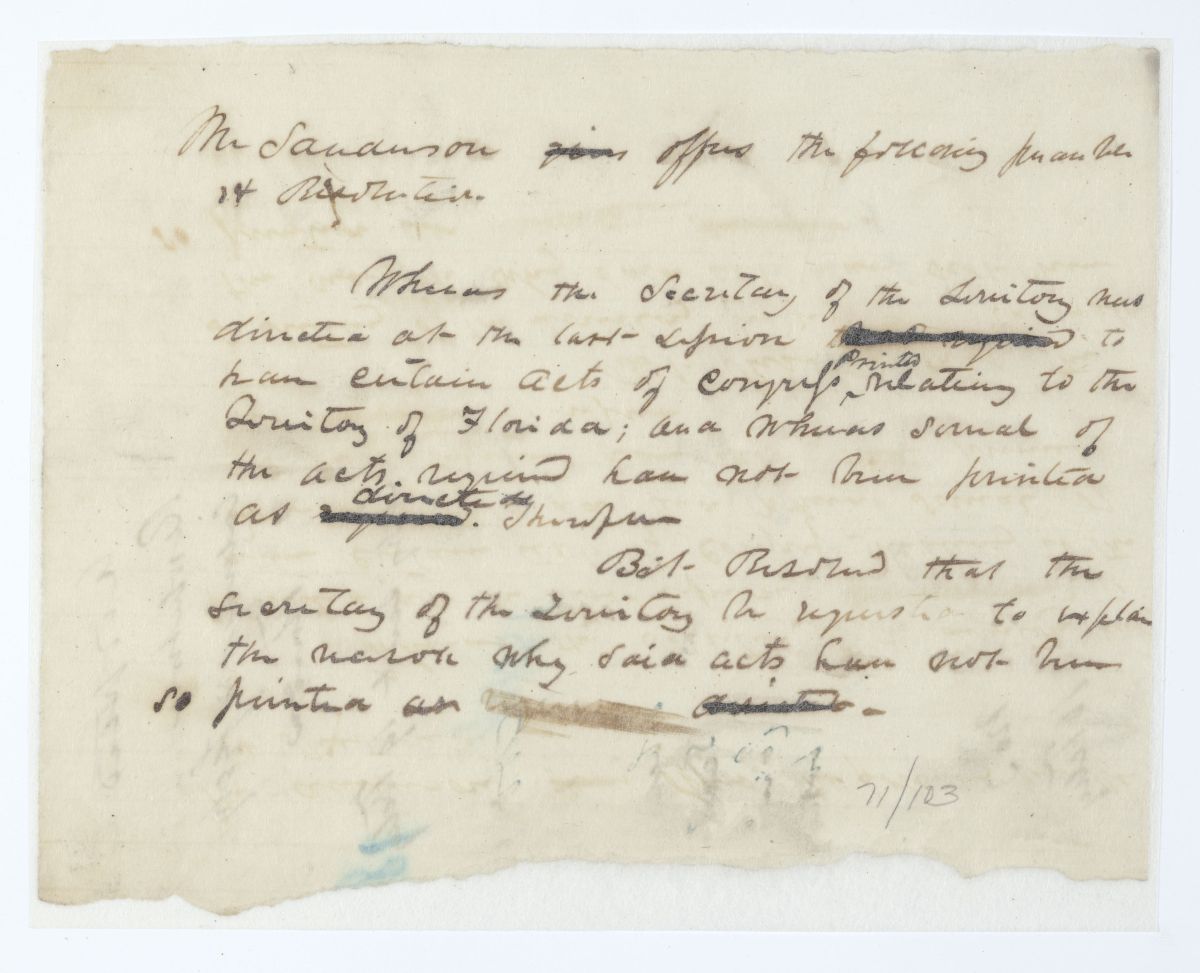 Mr Sanderson offers the following preamble
& Resolution.
Whereas the Secretary of the Territory was
directed at the last Session to
have certain Acts of Congress Printed relating to the
Territory of Florida; and Whereas several of
the acts required have not been printed
as directed. Therefore
Be it Resolved that the
Secretary of the Territory be requested to explain
the reason why said acts have not been
so printed as directed.
71/103